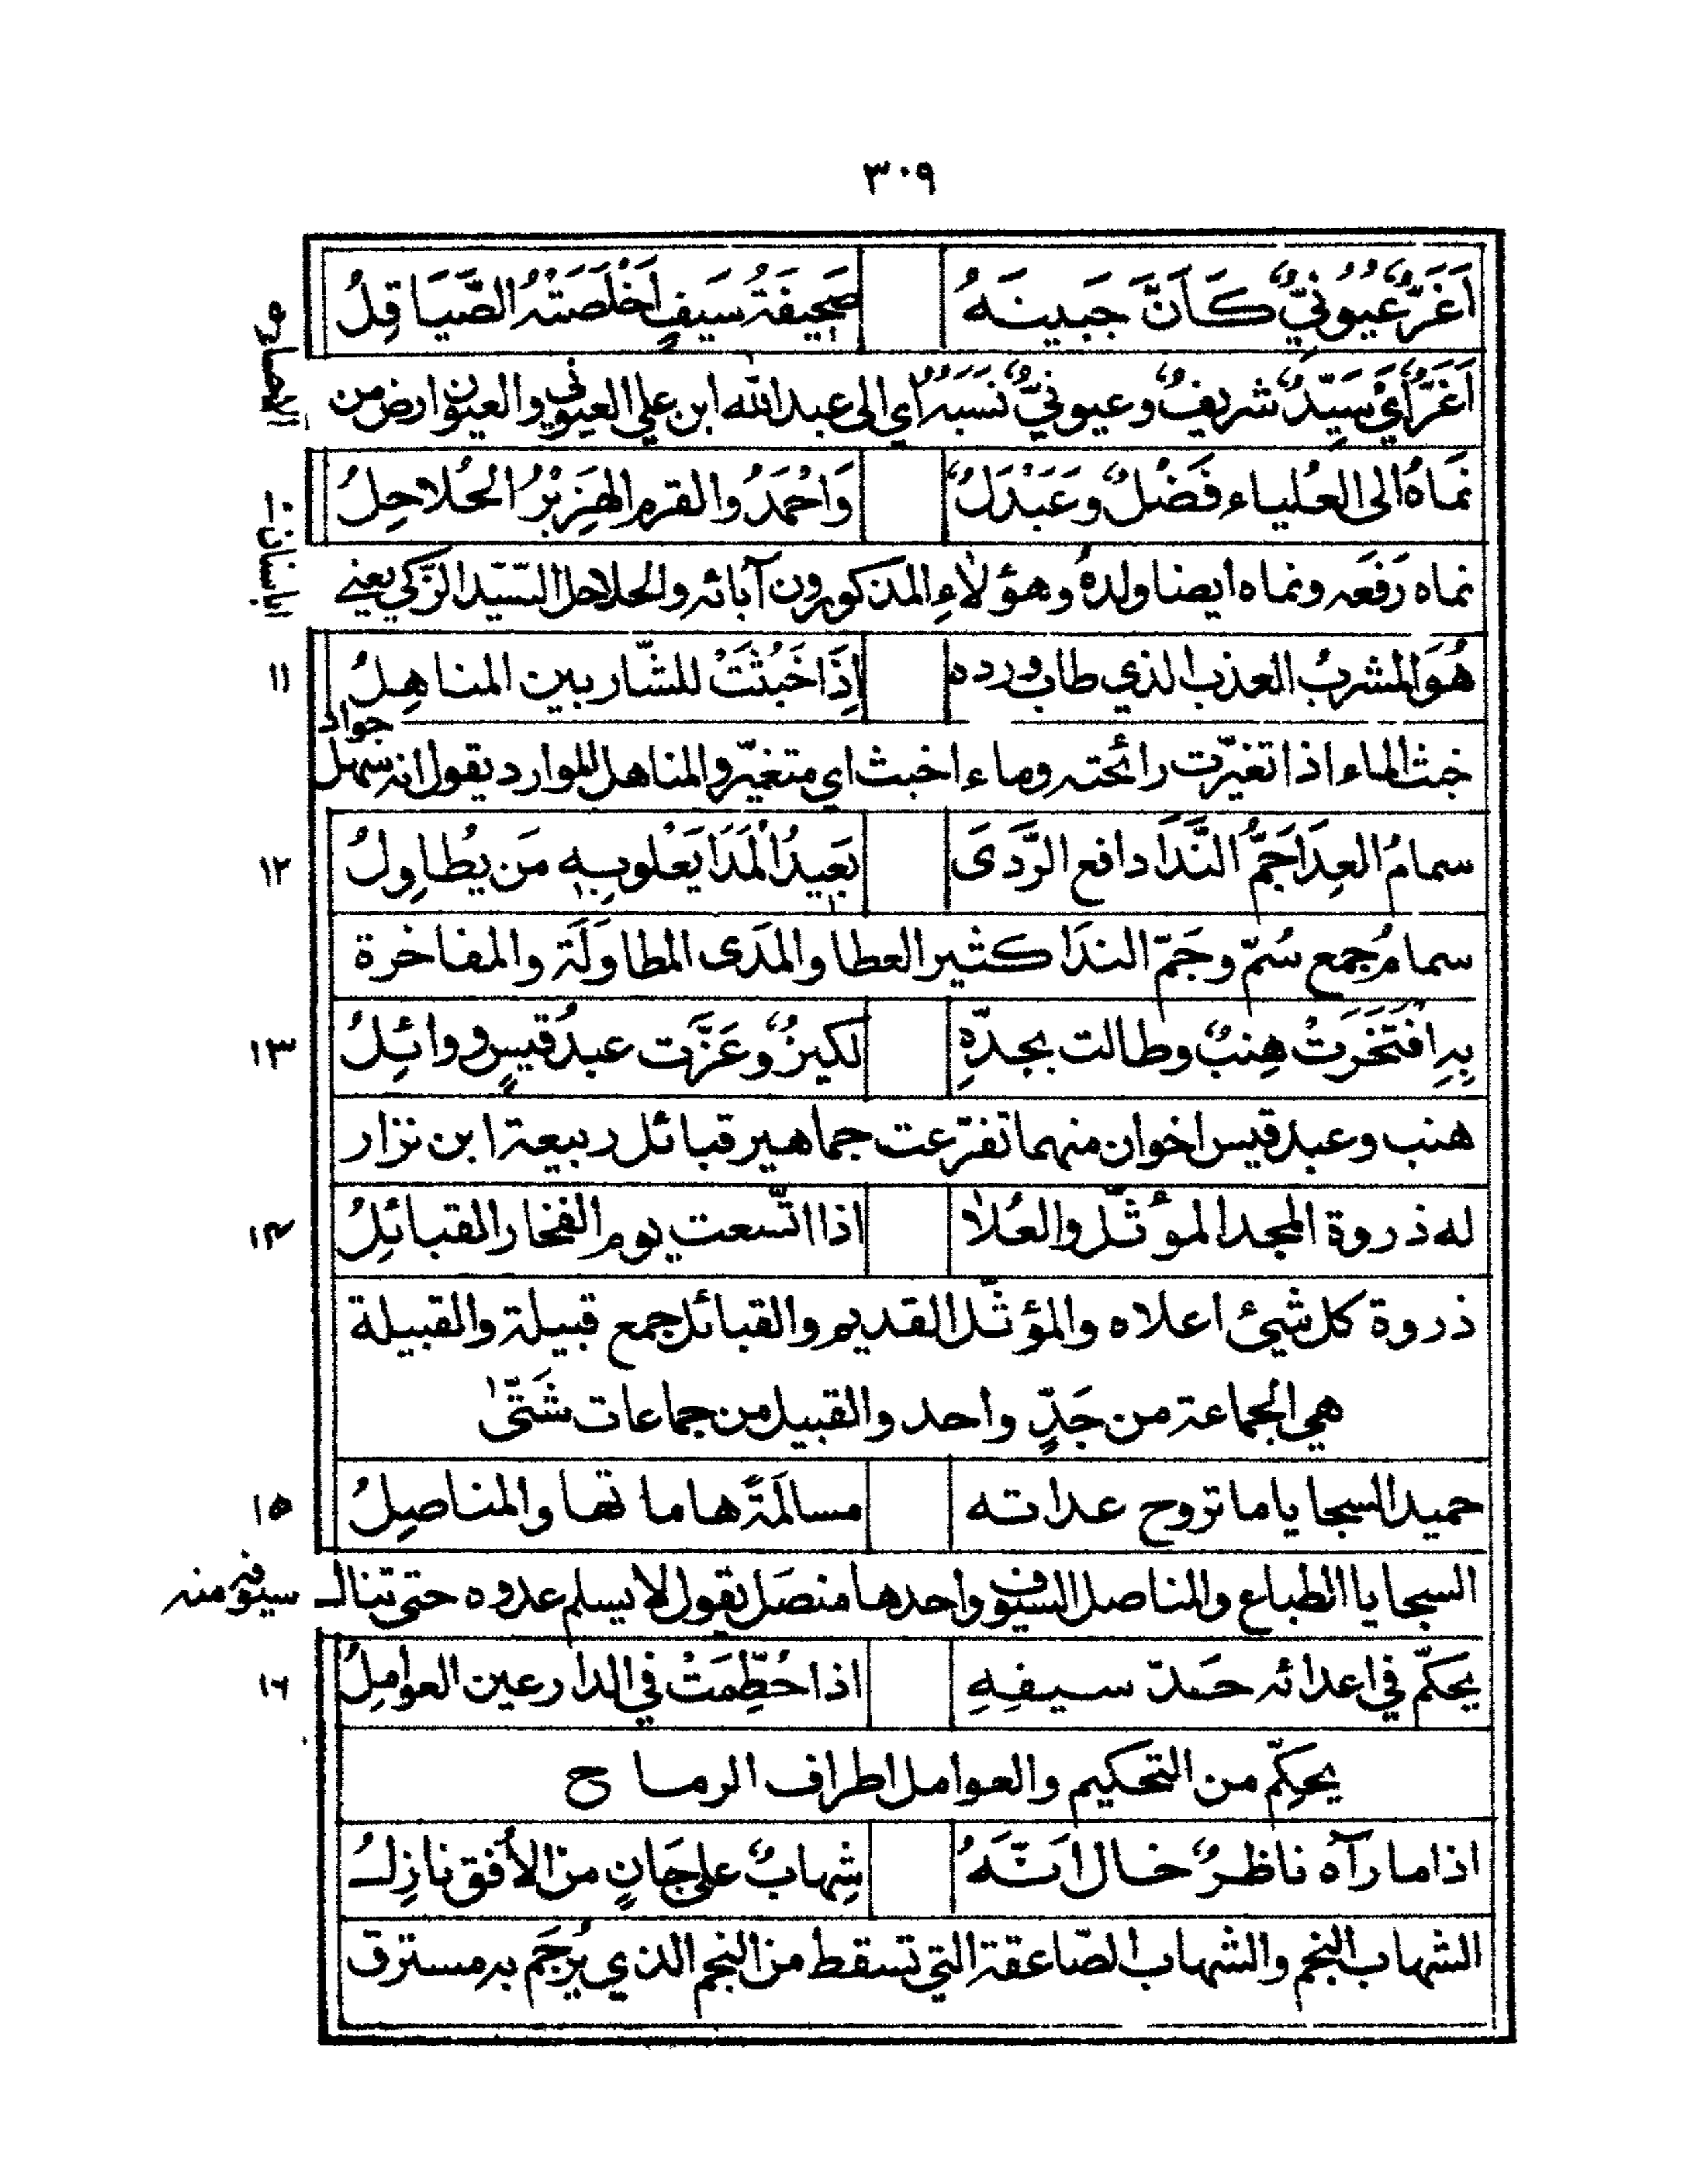 ٣٠٩
اَغَرٌّ عُيُونِيٌّ كَاَنَّ جَبِينَهُ صَحِيفَةُ سَيفٍ اَخْلَصَتْهُ الصَّيَاقِلُ
اَغَرٌّ اَيْ سَيِّدٌ شريفٌ وعيونيٌّ نَسَبَهُ اي الى عبدالله ابن علي العيوني والعيون ارض من
نَمَاهُ الى العلياء فَضْلٌ وعَبْدَلٌ وَاَحْمَدُ والقرم الهِزَبْرُ الحُلاحِلُ ١٠
نماه رَفَعَه ونماه ايضا ولدهُ وهؤلاءِ المذكورون آبائه والحلاحل السّيّد الزّكي يعني
هُوَ المشربُ العذب الذي طاب ورده اِذَا خَبُثَتْ للشّاربين المناهِلُ ١١
خبث الماء اذا تغيّرت رائحته وماء اخبث اي متغيّر والمناهل الموارد يقول انه سهل جواد
سمامُ العِدَا جَمُّ النَّدَا دافع الرَّدَى بَعِيدُ الْمَدَا يَعْلو بِهِ مَن يُطاوِلُ ١٢
سمامُ جمع سُمّ وجَمّ الندَا كثير العطا والمَدَى المطاوَلَة والمفاخرة
بِهِ افْتَخَرَتْ هِنبٌ وطالت بجدّهِ لكيزٌ وعَزَّت عبدُ قيسٍ ووائِلُ ١٣
هنب وعبد قيس اخوان منهما تفرّعت جماهير قبائل ربيعة ابن نزار
له ذروة المجد المؤثّل والعُلا اذا اتّسعت يوم الفخار القبائِلُ ١٤
ذروة كل شيئ اعلاه والمؤثّل القديم والقبائل جمع قبيلة والقبيلة
هي الجماعة من جَدٍّ واحد والقبيل من جماعات شَتّى
حميد السجايا ما تروح عداته مسالَمَةً هاماتها والمناصِلُ ١٥
السجايا الطباع والمناصل السيوف واحدها منصَل يقول لا يسلم عدوه حتى تنال سيوفه منه
يحكّم في اعدائه حَدّ سيفِهِ اذا حُطِّمَتْ في الدارعين العوامِلُ ١٦
يحكِّم من التحكيم والعوامل اطراف الرماح
اذا ما رآه ناظرٌ خال اَنّهُ شِهابٌ على جَانٍ من الأفق نازِلُ
الشهاب النجم والشهاب الصّاعقة التي تسقط من النجم الذي يُرجَم به مسترق